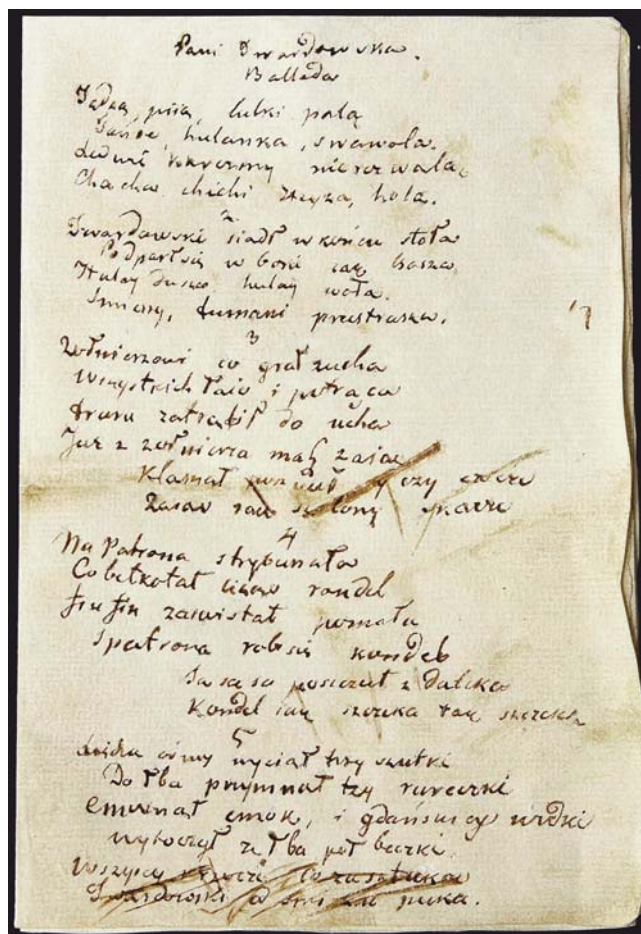 Pani Twardowska.
Ballada
Jedzą piią, lulki palą
Tańce, hulanka, swawola.
Ledwie karczmy nie rozwalą.
Cha cha, chichi heyza, hola.
2
Twardowski siadł w końcu stoła
Podparł się w boki iak basza
Hulay dusza hulay woła.
Smieszy, tumani przestrasza.
3
Żołnierzowi co grał zucha
Wszystkich łaie i potrąca
do ucha
Już z żołnierza masz zaiąc
Klasnął czy
4
Na Patrona strybunału
Co bełkotał rondel
Fiu fiu zaswistał pomału
Spatrona robi się kondel
z daleka
Kondel iak szczeka tak szczeka
5
wyciął trzy szutki
Do łba przymnął trzy rureczki
Cmoknął cmok, i gdańskiey wódki
wytoczył ze łba pół beczki.
Wszyscy to za sztuka
Twardowski